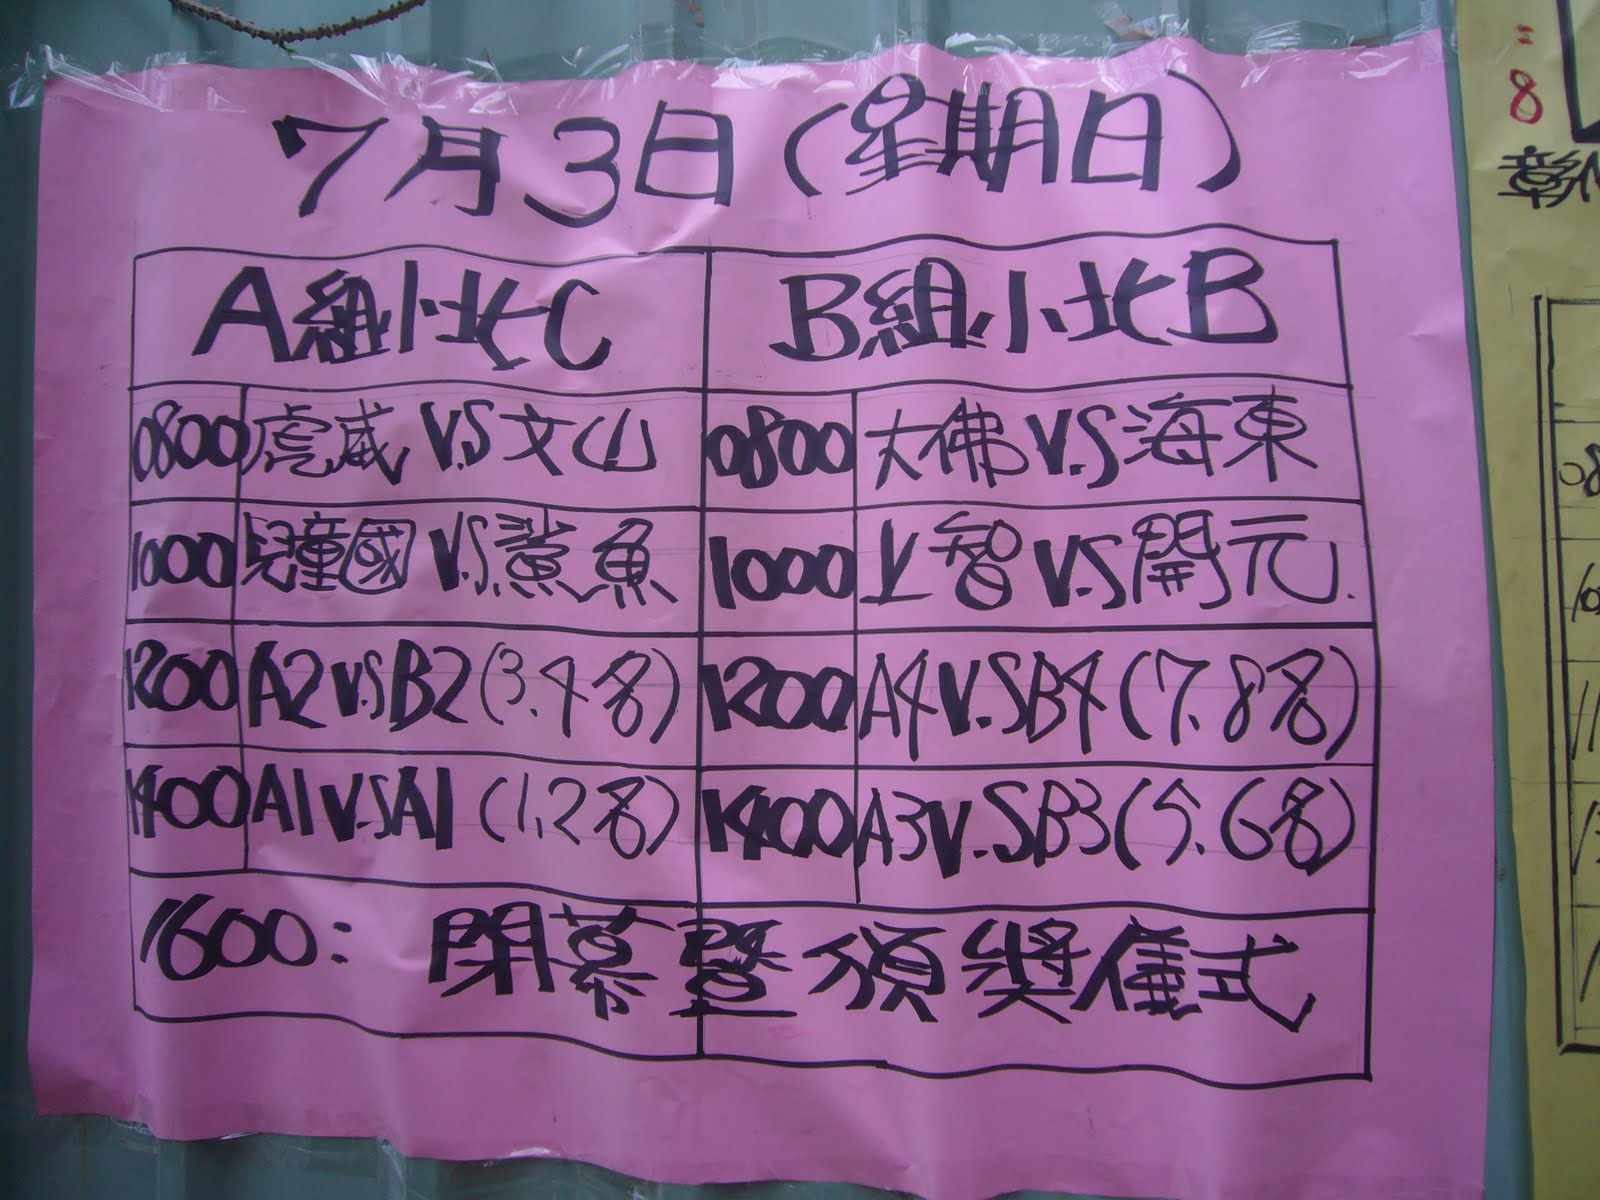 7月3日(星期日)
A組小北C
B組小北B
0800 虎威 V.S 文山
0800 大佛 V.S 海東
1000 兒童國 V.S. 鯊魚
1000 上智 V.S 開元.
1200 A2 V.S B2 (3.4名)
1200 A4 V.S B4 (7.8名)
1400 A1 V.S A1 (1.2名)
1400 A3 V.S B3 (5.6名)
1600: 閉幕暨頒獎儀式
:8
彰